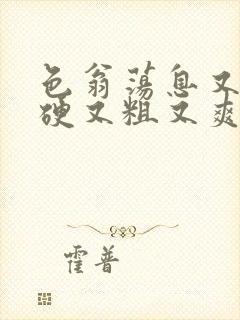 色翁荡息又
硬又粗又爽
霍普